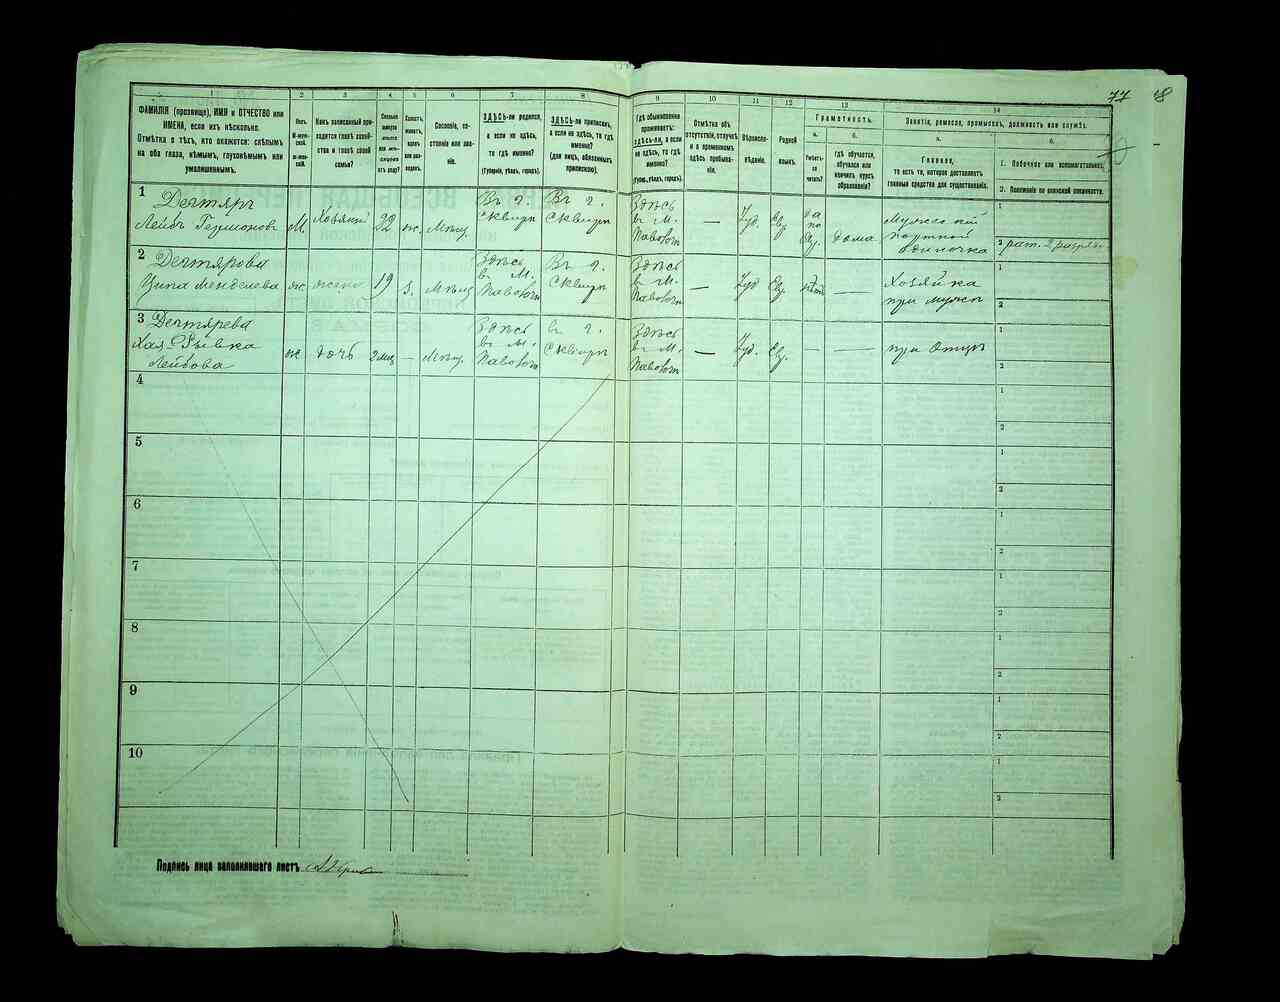 77 78
1 2 3 4 5 6 7 8 9 10 11 12 13 14
ФАМИЛІЯ (прозвище), ИМЯ и ОТЧЕСТВО или
ИМЕНА, если ихъ нѣсколько.
Отмѣтка о тѣхъ, кто окажется: слѣпымъ
на оба глаза, нѣмымъ, глухонѣмымъ или
умалишеннымъ.
Полъ.
М-муж-
ской.
Ж-жен-
скій.
Какъ записанный при-
ходится главѣ хозяй-
ства и главѣ своей
семьи?
Сколько
минуло
лѣтъ
или мѣ-
сяцевъ
отъ роду?
Холостъ,
женатъ,
вдовъ
или раз-
веденъ.
Сословіе, со-
стояніе или зва-
ніе.
ЗДѢСЬ-ли родился,
а если не здѣсь,
то гдѣ именно?
(Губернія, уѣздъ, городъ).
ЗДѢСЬ-ли приписанъ,
а если не здѣсь, то гдѣ
именно?
(для лицъ, обязанныхъ
припискою).
Гдѣ обыкновенно
проживаетъ:
ЗДѢСЬ-ли, а если
не здѣсь, то гдѣ
именно?
(Губерн., уѣздъ, городъ).
Отмѣтка объ
отсутствіи, отлучкѣ
и о временномъ
здѣсь пребыва-
ніи.
Вѣроиспо-
вѣданіе.
Родной
языкъ.
Грамотность.
а.
Умѣетъ-
ли
читать?
б.
гдѣ обучается,
обучался или
кончилъ курсъ
образованія?
Занятіе, ремесло, промыселъ, должность или служба.
а.
Главное,
то есть то, которое доставляетъ
главныя средства для существованія.
б.
1. Побочное или вспомогательное.
2. Положеніе по воинской повинности.
1 Дегтярь
Лейбъ Гершоновъ М. хозяинъ 22 ж. Мѣщ. Въ г. Сквирѣ Въ г. Сквирѣ Здѣсь въ М. Паволочи — Іуд. Евр. да по Евр. дома 1
2 рат. 2 разряда
2 Дегтярова
Ципа Менделева ж жена 19 з. Мѣщ Здѣсь въ М. Паволочи Въ г. Сквирѣ Здѣсь въ М. Паволочи — Іуд Евр. нѣтъ — Хозяйка при мужѣ 1
2
3 Дегтярева
Хая Рывка
Лейбова ж. дочь 2 мѣс — Мѣщ. Здѣсь въ М. Паволочи въ г. Сквирѣ Здѣсь въ М. Паволочи — Іуд. Евр. — — при Отцѣ 1
2
4 1
2
5 1
2
6 1
2
7 1
2
8 1
2
9 1
2
10 1
2
Подпись лица заполнявшаго листъ